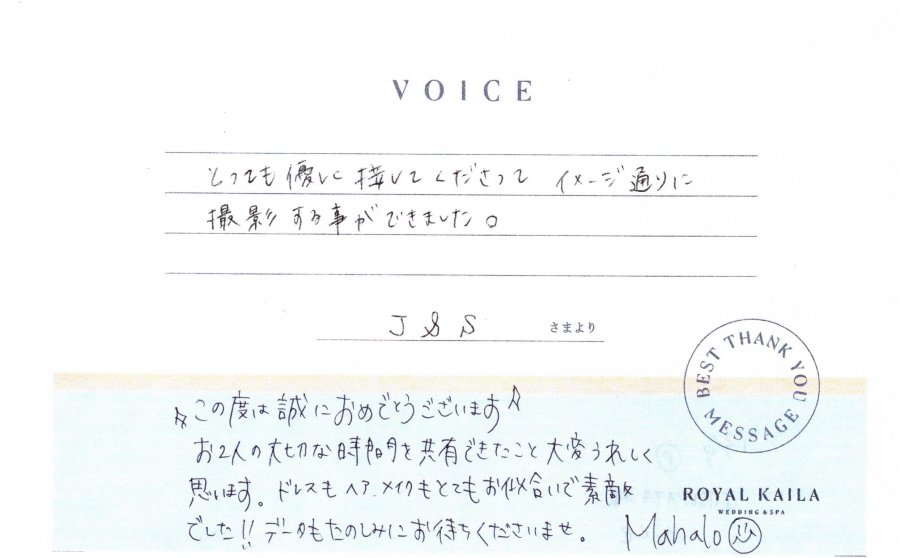 VOICE
とっても優しく接してくださって イメージ通りに
撮影する事ができました。
J & S さまより
BEST THANK YOU MESSAGE
この度は誠におめでとうございます
お2人の大切な時間を共有できたこと大変うれしく
思います。ドレスもヘア、メイクもとてもお似合いで素敵
でした!!データもたのしみにお待ちくださいませ。
ROYAL KAILA
WEDDING & SPA
Mahalo